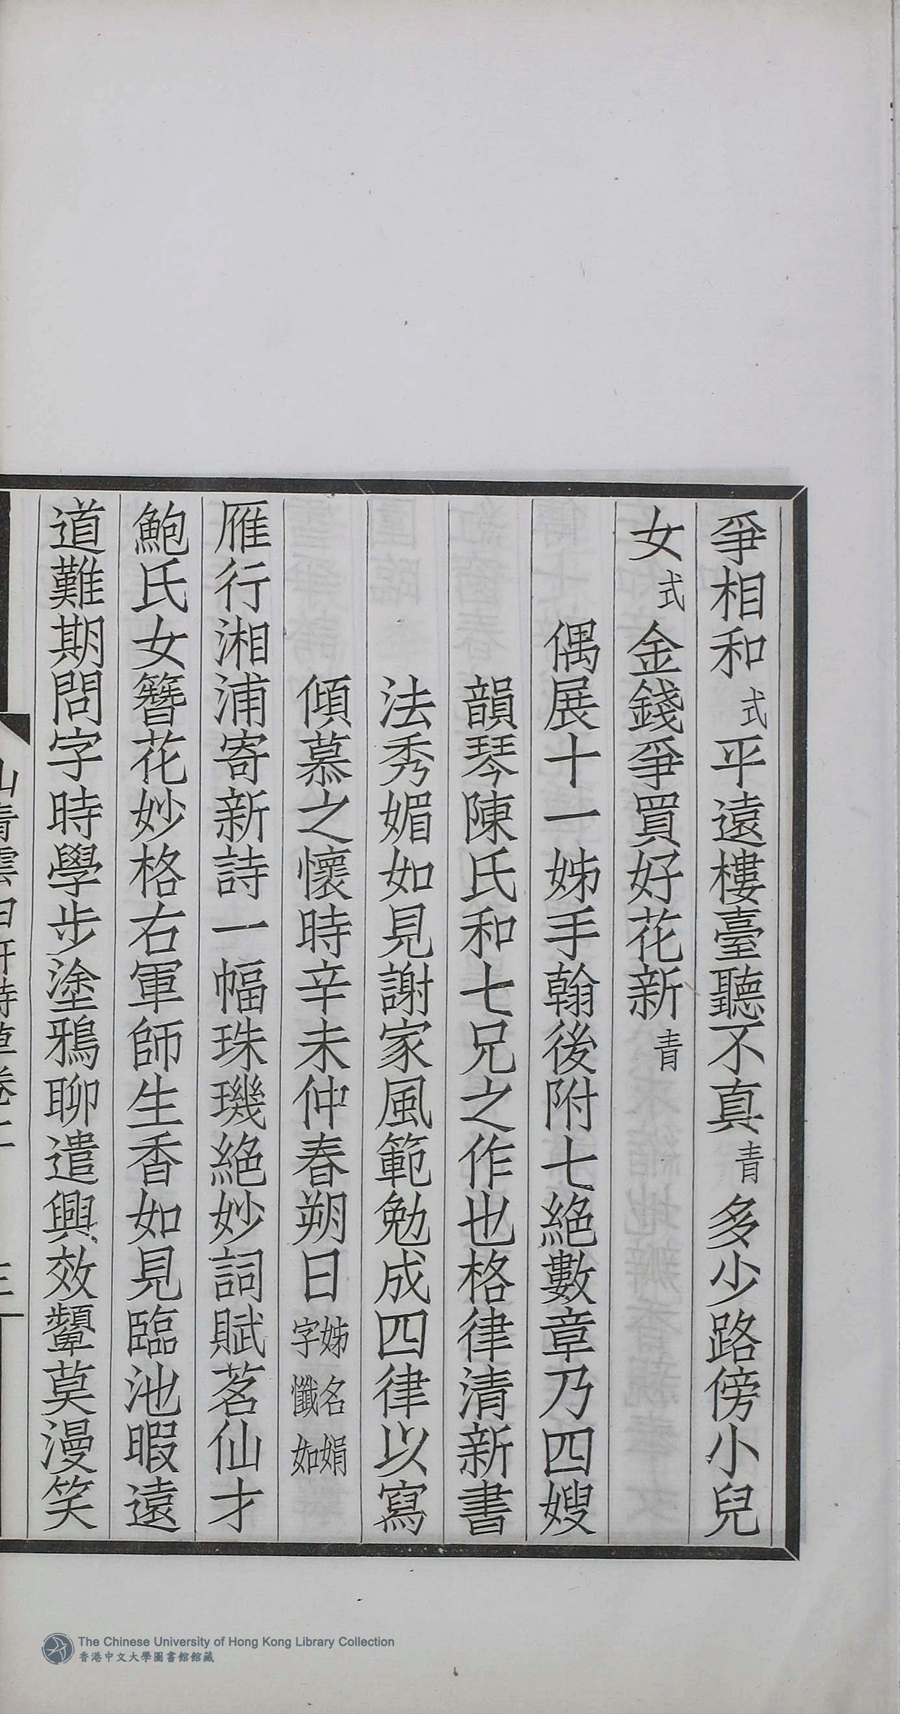 爭相和式平遠樓臺聽不真青多少路傍小兒
女式金錢爭買好花新青
偶展十一姊手翰後附七絕數章乃四嫂
韻琴陳氏和七兄之作也格律清新書
法秀媚如見謝家風範勉成四律以寫
傾慕之懷時辛未仲春朔日姊名娟字懺如
雁行湘浦寄新詩一幅珠璣絕妙詞賦茗仙才
鮑氏女簪花妙格右軍師生香如見臨池暇遠
道難期問字時學步塗鴉聊遣興效顰莫漫笑
The Chinese University of Hong Kong Library Collection
香港中文大學圖書館館藏